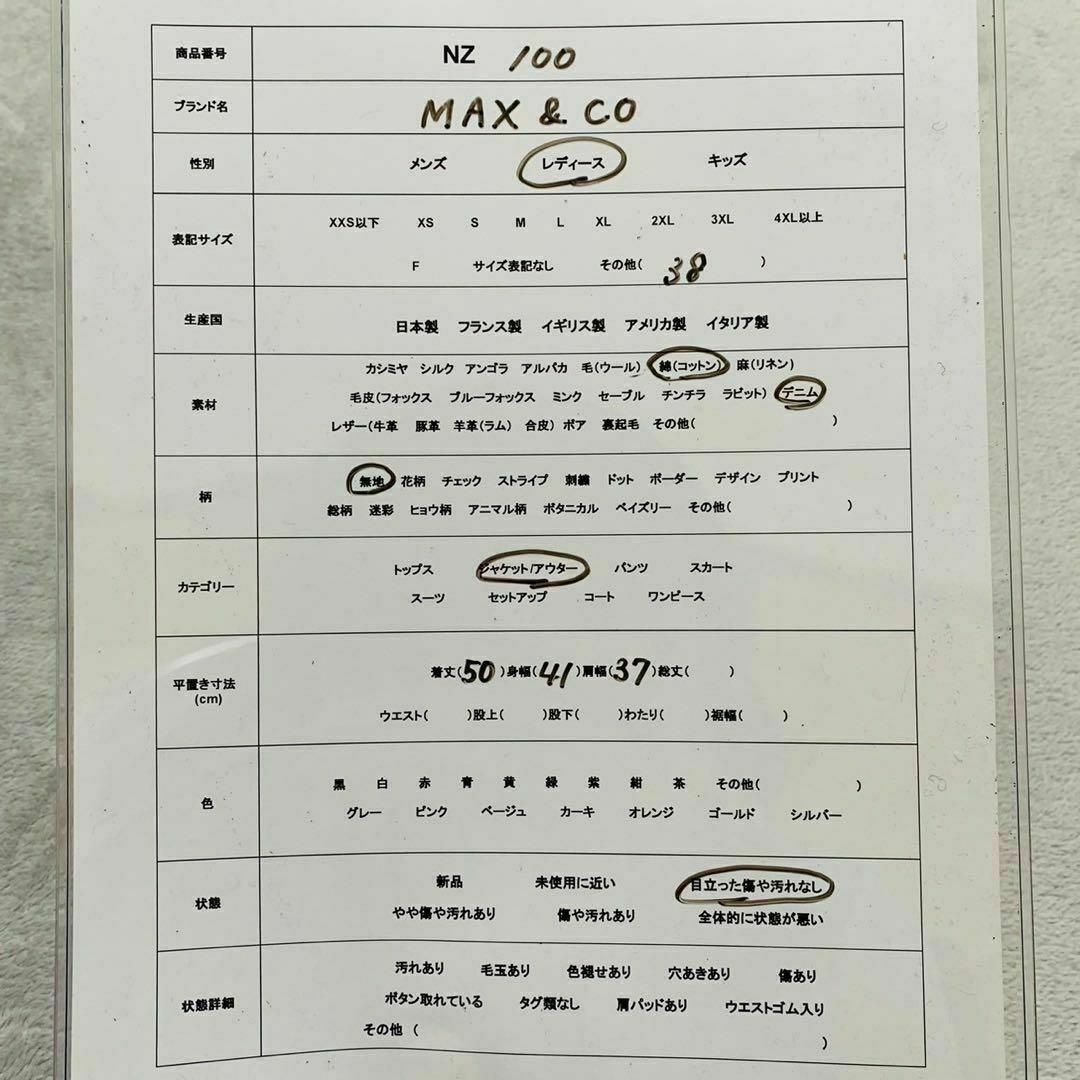 商品番号 NZ 100
ブランド名 MAX & CO
性別 メンズ レディース キッズ
表記サイズ
XXS以下 XS S M L XL 2XL 3XL 4XL以上
F サイズ表記なし その他( 38 )
生産国 日本製 フランス製 イギリス製 アメリカ製 イタリア製
素材
カシミヤ シルク アンゴラ アルパカ 毛(ウール) 綿(コットン) 麻(リネン)
毛皮(フォックス ブルーフォックス ミンク セーブル チンチラ ラビット) デニム
レザー(牛革 豚革 羊革(ラム) 合皮) ボア 裏起毛 その他( )
柄
無地 花柄 チェック ストライプ 刺繍 ドット ボーダー デザイン プリント
総柄 迷彩 ヒョウ柄 アニマル柄 ボタニカル ペイズリー その他( )
カテゴリー
トップス ジャケット/アウター パンツ スカート
スーツ セットアップ コート ワンピース
平置き寸法
(cm)
着丈(50)身幅(41)肩幅(37)総丈( )
ウエスト( )股上( )股下( )わたり( )裾幅( )
色
黒 白 赤 青 黄 緑 紫 紺 茶 その他( )
グレー ピンク ベージュ カーキ オレンジ ゴールド シルバー
状態
新品 未使用に近い 目立った傷や汚れなし
やや傷や汚れあり 傷や汚れあり 全体的に状態が悪い
状態詳細
汚れあり 毛玉あり 色褪せあり 穴あきあり 傷あり
ボタン取れている タグ類なし 肩パッドあり ウエストゴム入り
その他 ( )